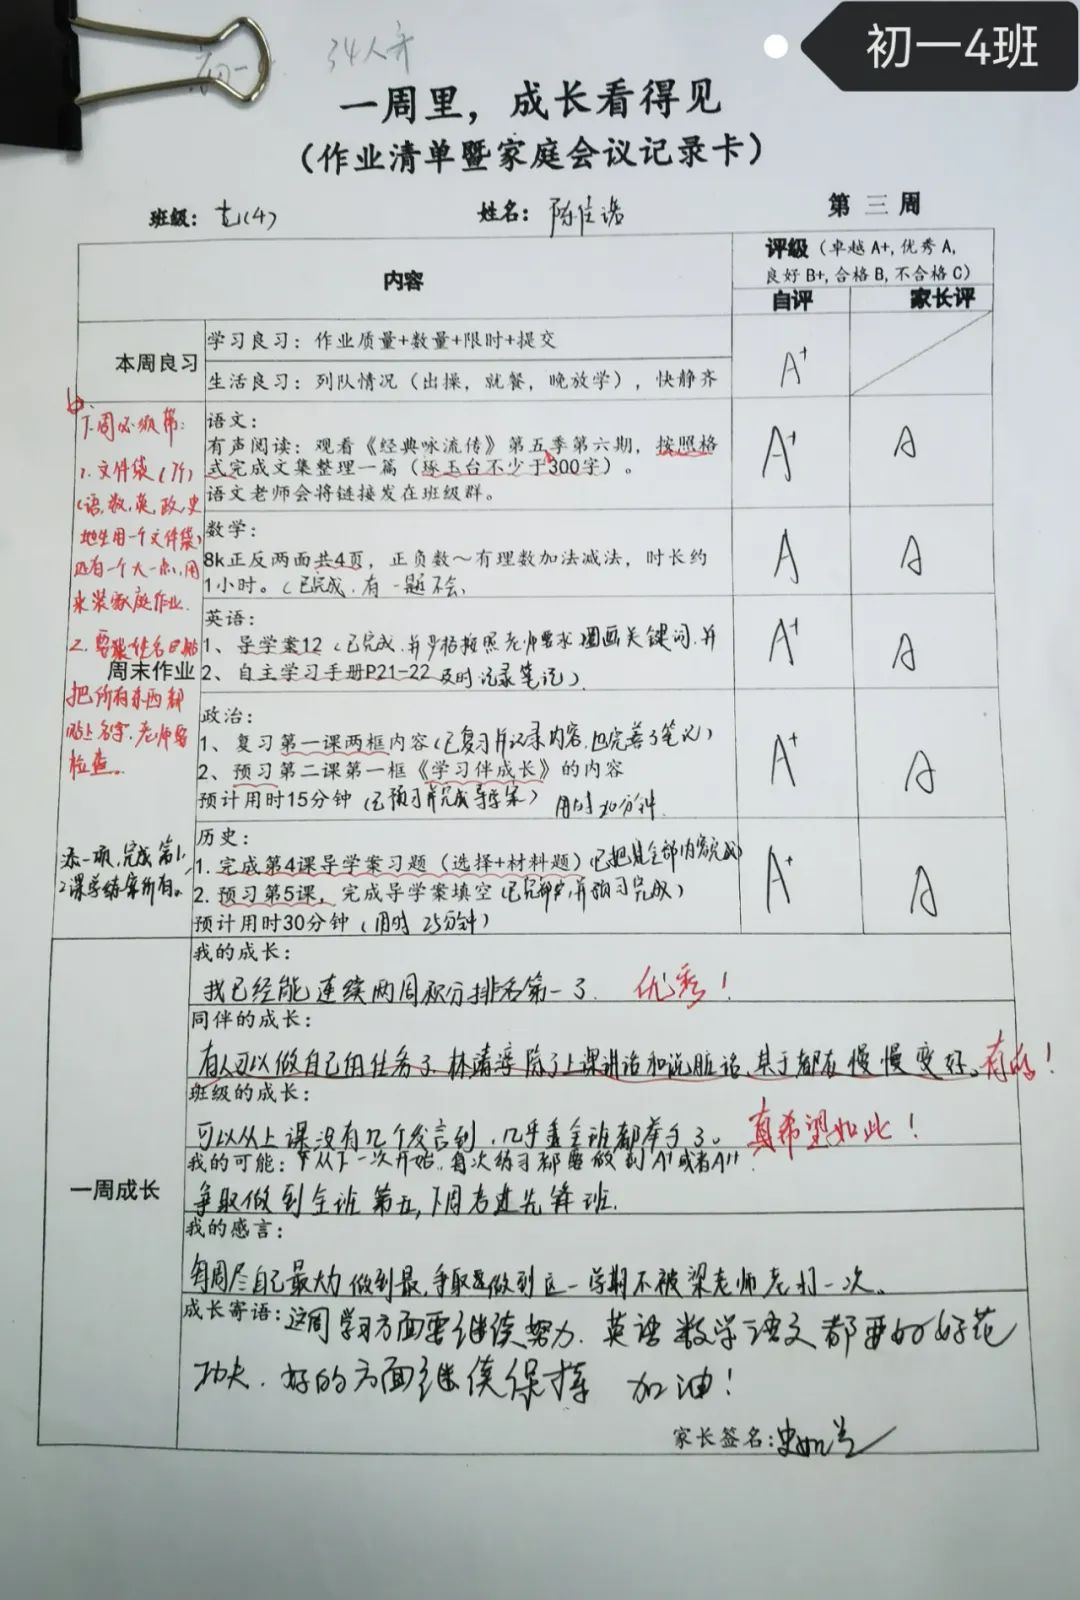 初一4班
34人齐
初一
一周里，成长看得见
（作业清单暨家庭会议记录卡）
班级：七(4)
姓名：陈佳诺
第 三 周
内容
评级（卓越 A+, 优秀 A,
良好 B+, 合格 B, 不合格 C）
自评
家长评
本周良习
学习良习：作业质量+数量+限时+提交
生活良习：列队情况（出操，就餐，晚放学），快静齐
A+
下周必须带：
1. 文件袋（7个）
（语,数,英,政,史
地生用一个文件袋）
还有一个大一点,用
来装家庭作业.
2.
周末作业
把所有东西都
贴上名字.老师要
检查。
语文：
有声阅读：观看《经典咏流传》第五季第六期，按照格
式完成文集整理一篇（琢玉台不少于300字）。
语文老师会将链接发在班级群。
A+
A
数学：
8k正反两面共4页，正负数～有理数加法减法，时长约
1小时。（已完成.有一题不会,
A
A
英语：
1、导学案12（已完成.并严格按照老师要求圈画关键词.并
2、自主学习手册P21-22及时记录笔记）
A+
A
政治：
1、复习第一课两框内容（已复习并记录内容.也完善了笔记）
2、预习第二课第一框《学习伴成长》的内容
预计用时15分钟（已预习并完成导学案） 用时20分钟
A+
A
添一项.完成第1.
2课学练案所有。
历史：
1. 完成第4课导学案习题（选择+材料题）（已把其全部内容完成）
2. 预习第5课，完成导学案填空（已完成,并预习完成）
预计用时30分钟（用时 25分钟）
A+
A
一周成长
我的成长：
我已经能连续两周积分排名第一了. 优秀！
同伴的成长：
有人可以做自己的任务了.林清淳除了上课讲话和说脏话,其于都在慢慢变好。
班级的成长：
可以从上课没有几个发言到,几乎是全班都举手了。 真希望如此！
我的可能：从下一次开始,每次练习都要做到A+或者A++.
争取做到全班第五,下周考进先锋班.
我的感言：
每周尽自己最大力做到最,争取做到这一学期不被梁老师老打一次。
成长寄语：这周学习方面要继续努力.英语数学语文都要好好花
功夫.好的方面继续保持 加油！
家长签名：